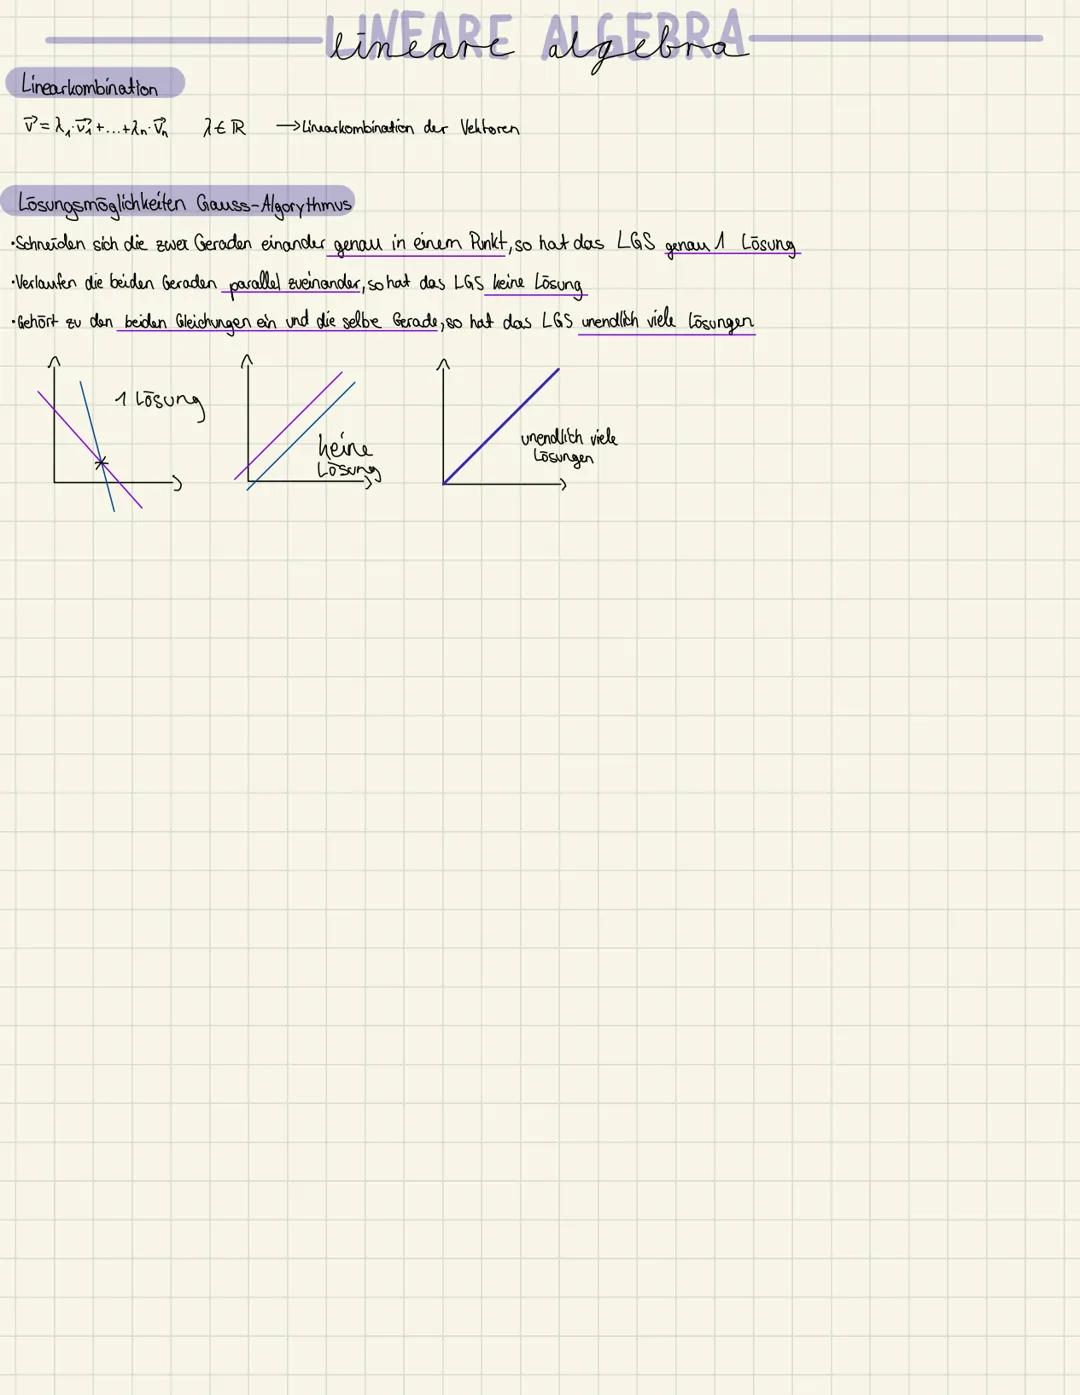 LINEARE ALGEBRA
lineare algebra
Linearkombination
v⃗ = λ₁·v⃗₁+...+λₙ·v⃗ₙ λ∈ℝ →Linearkombination der Vektoren
Lösungsmöglichkeiten Gauss-Algorythmus
·Schneiden sich die zwei Geraden einander genau in einem Punkt, so hat das LGS genau 1 Lösung
·Verlaufen die beiden Geraden parallel zueinander, so hat das LGS keine Lösung
·Gehört zu den beiden Gleichungen ein und die selbe Gerade, so hat das LGS unendlich viele Lösungen
1 Lösung
keine
Lösung
unendlich viele
Lösungen